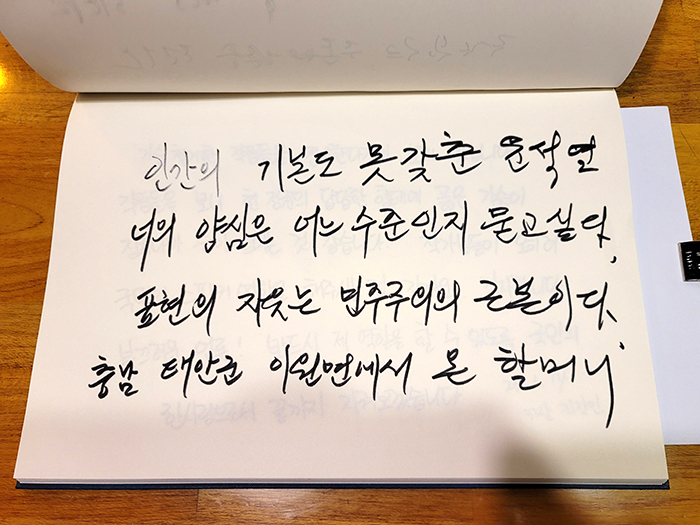 인간의 기본도 못갖춘 윤석연
너의 양심은 어느 수준인지 묻고싶다,
표현의 자윳는 민주주의의 근본이다,
충남 태안군 이원면에서 온 할머니